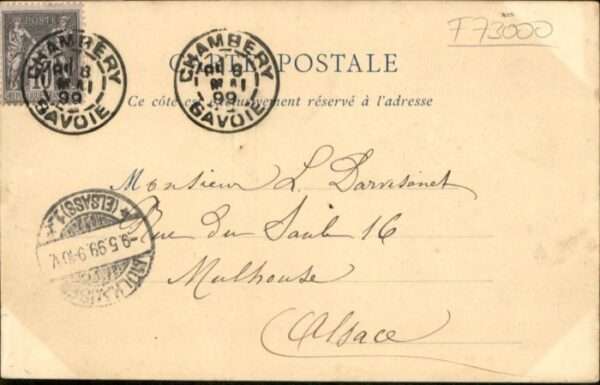 F73000
POSTE
CHAMBERY
8
MAI
99
SAVOIE
CHAMBERY
8
MAI
99
SAVOIE
CARTE POSTALE
Ce côté est exclusivement réservé à l'adresse
Monsieur L.
Rue du Saule 16
Mulhouse
Alsace
(ELSASS) 1
-9.5.99.9-10V.